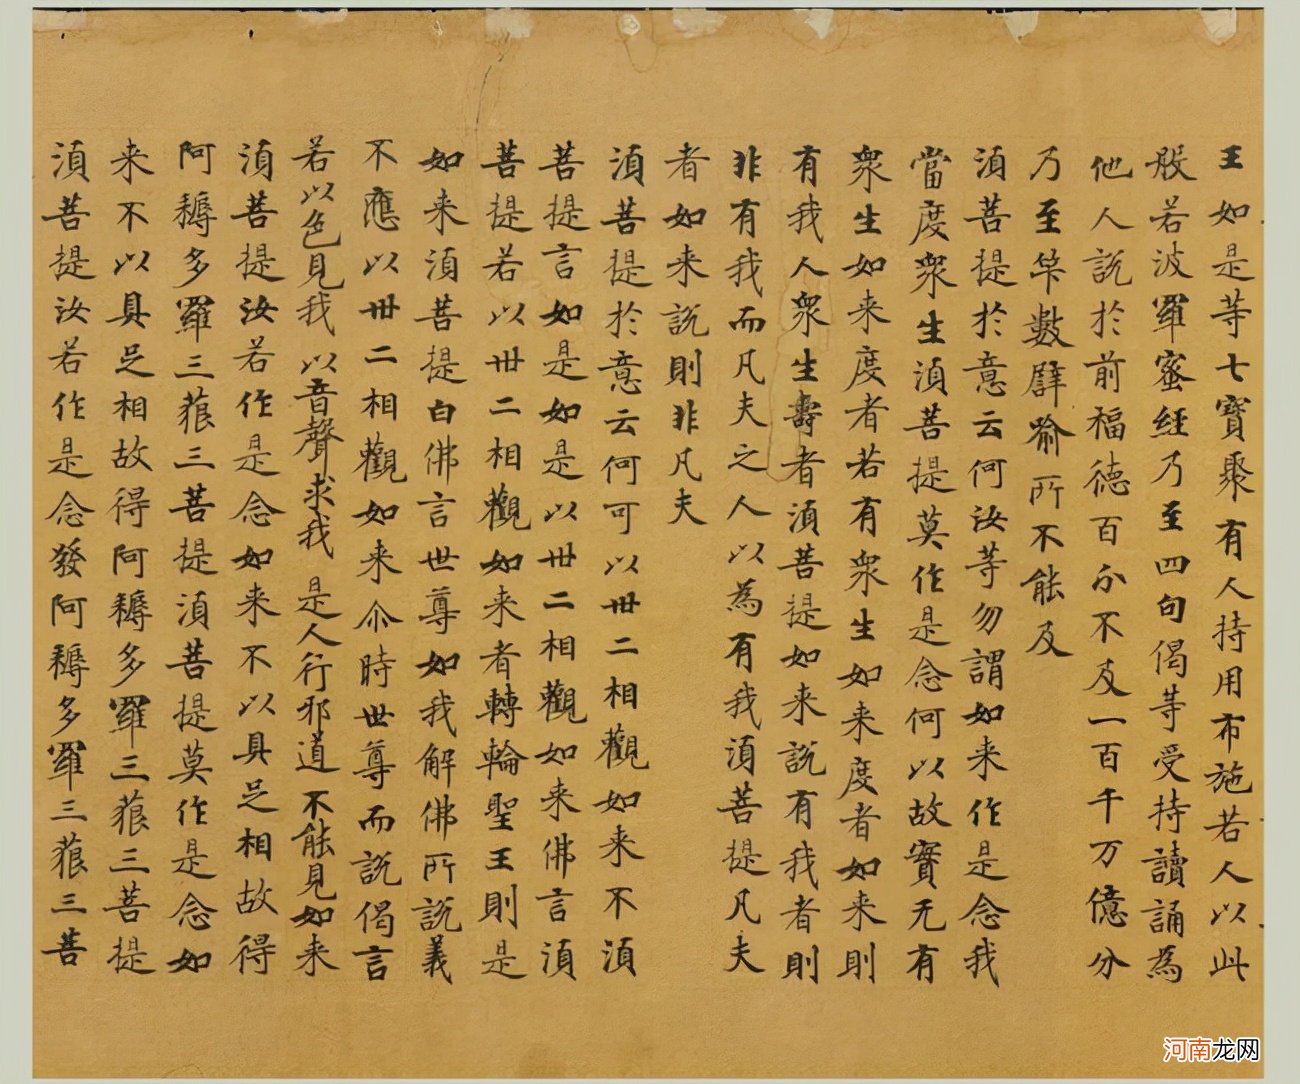 王如是等七寶聚有人持用布施若人以此
般若波羅蜜經乃至四句偈等受持讀誦為
他人說於前福德百分不及一百千万億分
乃至笇數譬喻所不能及
須菩提於意云何汝等勿謂如来作是念我
當度衆生須菩提莫作是念何以故實无有
衆生如来度者若有衆生如来度者如来則
有我人衆生壽者須菩提如来說有我者則
非有我而凡夫之人以為有我須菩提凡夫
者如来說則非凡夫
須菩提於意云何可以卅二相觀如来不須
菩提言如是如是以卅二相觀如来佛言須
菩提若以卅二相觀如来者轉輪聖王則是
如来須菩提白佛言世尊如我解佛所說義
不應以卅二相觀如来尒時世尊而說偈言
若以色見我以音聲求我 是人行邪道不能見如来
須菩提汝若作是念如来不以具足相故得
阿耨多羅三藐三菩提須菩提莫作是念如
来不以具足相故得阿耨多羅三藐三菩提
須菩提汝若作是念發阿耨多羅三藐三菩
河南龙网